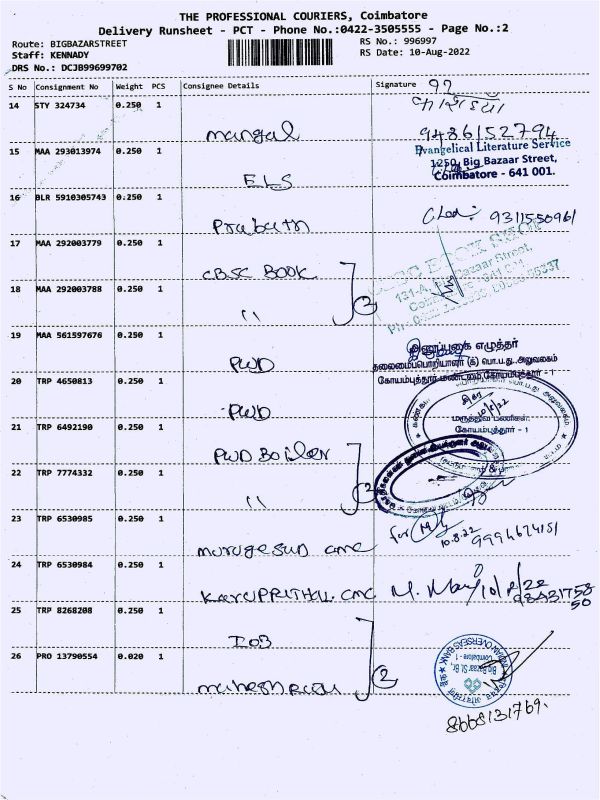 THE PROFESSIONAL COURIERS, Coimbatore
Delivery Runsheet - PCT - Phone No.:0422-3505555 - Page No.:2
Route: BIGBAZARSTREET
RS No.: 996997
Staff: KENNADY
RS Date: 10-Aug-2022
DRS No.: DCJB99699702
S No Consignment No Weight PCS Consignee Details Signature 92
14 STY 324734 0.250 1
mangal 9486152794
15 MAA 293013974 0.250 1
Evangelical Literature Service
1250, Big Bazaar Street,
Coimbatore - 641 001.
ELS
16 BLR 5910305743 0.250 1
Prabath 9311550961
17 MAA 292003779 0.250 1
CBSC BOOK
18 MAA 292003788 0.250 1
" 2
19 MAA 561597676 0.250 1
எழுத்தர்
தலைமைப்பொறியாளர் (க) பொ.ப.து. அலுவலகம்
கோயம்புத்தூர் மண்டலம், கோயம்புத்தூர் - 1
PWD
20 TRP 4650813 0.250 1
PWD
மருத்துவ பணிகள்
கோயம்புத்தூர் - 1
21 TRP 6492190 0.250 1
PWD Boiler
22 TRP 7774332 0.250 1
" 2
23 TRP 6530985 0.250 1
for
10.8.22
murugesun cmc
24 TRP 6530984 0.250 1
KARUPPATHAL CMC M.
25 TRP 8268208 0.250 1
IOB
26 PRO 13790554 0.020 1
INDIAN OVERSEAS BANK
Big Bazaar St. Br,
Coimbatore - 1
2
8668131769.